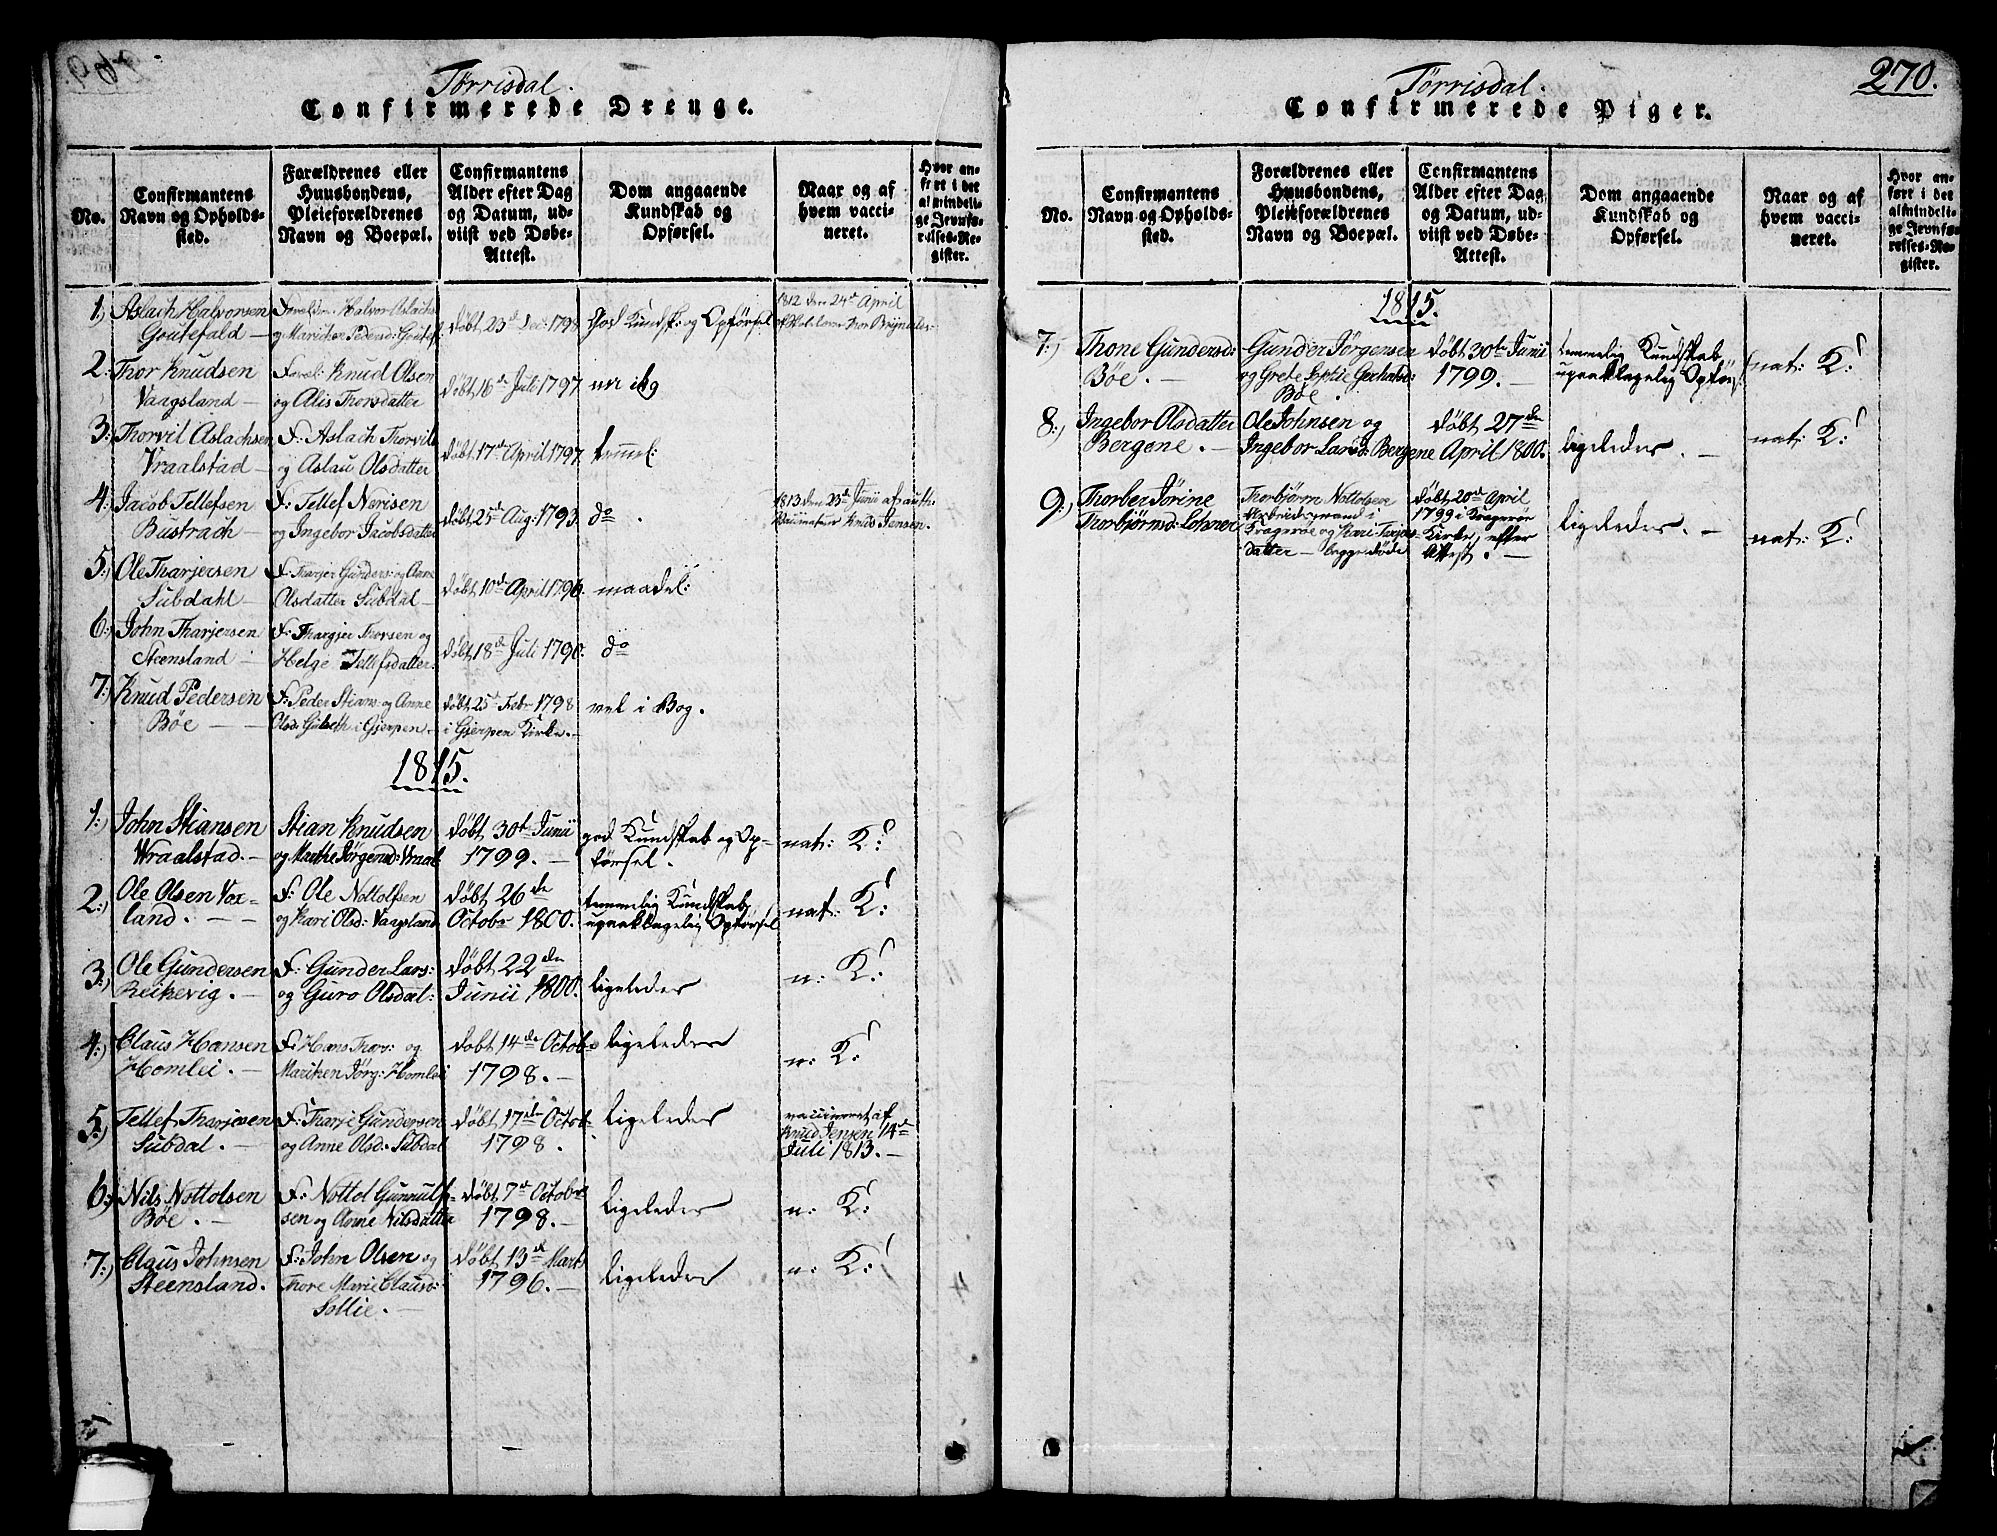 Tørrisdal.
Confirmerede Drenge.
No.
Confirmantens
Navn og Opholds-
sted.
Forældrenes eller
Huusbondens,
Pleieforældrenes
Navn og Boepæl.
Confirmantens
Alder efter Dag
og Datum, ud-
viist ved Døbe-
Attest.
Dom angaaende
Kundskab og
Opførsel.
Naar og af
hvem vacci-
neret.
Hvor an-
ført i det
almindeli-
ge Jevnfø-
relses-Re-
gister.
1,) Aslach Halvorsen
Goutefald —
og Mariken Peders: Goutef:
døbt 23d Dec: 1798
God Kundsk: og Opførsel
1812 den 24d April
2: Thor Knudsen
Vaagsland —
Foræl: Knud Olsen
og Alis Thorsdatter
døbt 16de Juli 1797
3:) Thorvil Aslachsen
Vraalstad —
F: Aslach Thorvils:
og Aslau Olsdatter
døbt 17de April 1797.
temmel:
4: Jacob Tellefsen
Bustrach —
F: Tellef Nerisen
og Ingebor Jacobsdatter
døbt 25de Aug: 1793.
do.
1813 den 23de Junii af auth:
Vaccinateur Knud Jensen.
5:) Ole Tharjersen
Subdahl —
F: Tharjer Gunders: og Anne
Olsdatter Subdal —
døbt 10de April 1796.
maadel:
6: John Tharjersen
Steensland —
F: Thargjer Thorsen og
Helge Tellefsdatter:
døbt 18de Juli 1790.
do
7:) Knud Pedersen
Bøe —
F: Peder Stians: og Anne
Olsd: Gulseth i Gjerpen.
døbt 25de Febr 1798
i Gjerpen Kirke. —
vel i Bog.
1815.
1:) John Stiansen
Vraalstad. —
Stian Knudsen
og Marthe Jørgensd: Vraal
døbt 30te Junii
1799. —
god Kundskab og Op-
førsel.
nat: K:
2:) Ole Olsen Vor-
land. —
F: Ole Nottolfsen
og Kari Olsd: Vaagsland
døbt 26de
Octobr 1800.
temmelig Kundskab,
upaaklagelig Opførsel
nat: K:
3:) Ole Gundersen
Reikevig. —
F: Gunder Lars:
og Guro Olsdat:
døbt 22de
Junii 1800.
ligeledes
n: K:
4:) Claus Hansen
Homlei. —
F: Hans Thors: og
Mariken Jørg: Homlei
døbt 14de Octob:
1798. —
ligeledes
n: K:
5:) Tellef Tharjesen
Subdal. —
F: Tharje Gundersen
og Anne Olsd: Subdal
døbt 17de Octob:
1798.
ligeledes
vaccineret af
Knud Jensen 14de
Juli 1813. —
6:) Nils Nottolsen
Bøe. —
F: Nottol Gunnulf-
sen og Anne Nilsdatter
døbt 7de Octobr
1798. —
ligeledes
n: K:
7:) Claus Johnsen
Steensland.
F: John Olsen og
Thore Marie Clausd:
Sollie. —
døbt 13de Marti
1796. —
ligeledes
n: K:
Tørrisdal.
270.
Confirmerede Piger.
No.
Confirmantens
Navn og Opholds-
sted.
Forældrenes eller
Huusbondens,
Pleieforældrenes
Navn og Boepæl.
Confirmantens
Alder efter Dag
og Datum, ud-
viist ved Døbe-
Attest.
Dom angaaende
Kundskab og
Opførsel.
Naar og af
hvem vacci-
neret.
Hvor an-
ført i det
almindeli-
ge Jevnfø-
relses-Re-
gister.
1815.
7:) Thone Gundersd:
Bøe. —
Gunder Jørgensen
og Grete Sophie
Bøe.
døbt 30te Junii
1799. —
temmelig Kundskab,
upaaklagelig Opførs:
nat: K:
8:) Ingebor Olsdatter
Bergene. —
Ole Johnsen og
Ingebor Larsd: Bergene
døbt 27de
April 1800.
ligeledes. —
nat: K:
9:) Thorber Jørine
Thorbjørnsd:
Thorbjørn Nottolsen
Arbeidsmand i
Kragerøe og Kari Tarjes-
datter — begge døde
døbt 20de April
1799 i Kragerøe
Kirke, efter
Attest. —
ligeledes. —
nat: K: